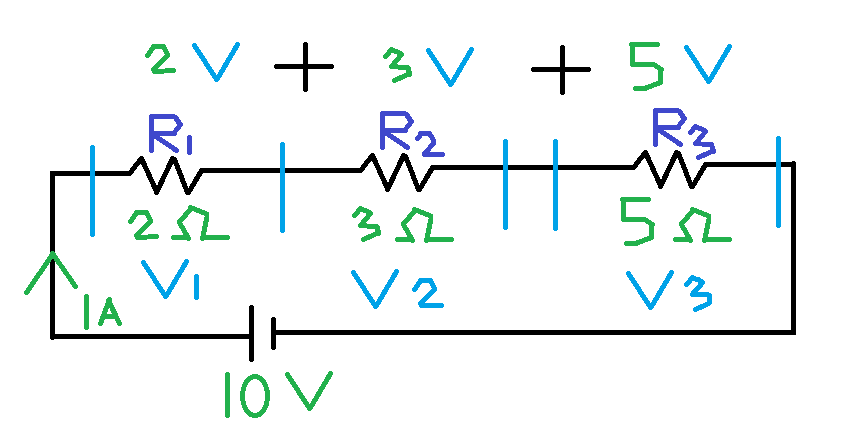 2 V + 3 V + 5 V
R1 R2 R3
2 Ω 3 Ω 5 Ω
V1 V2 V3
1A
10 V